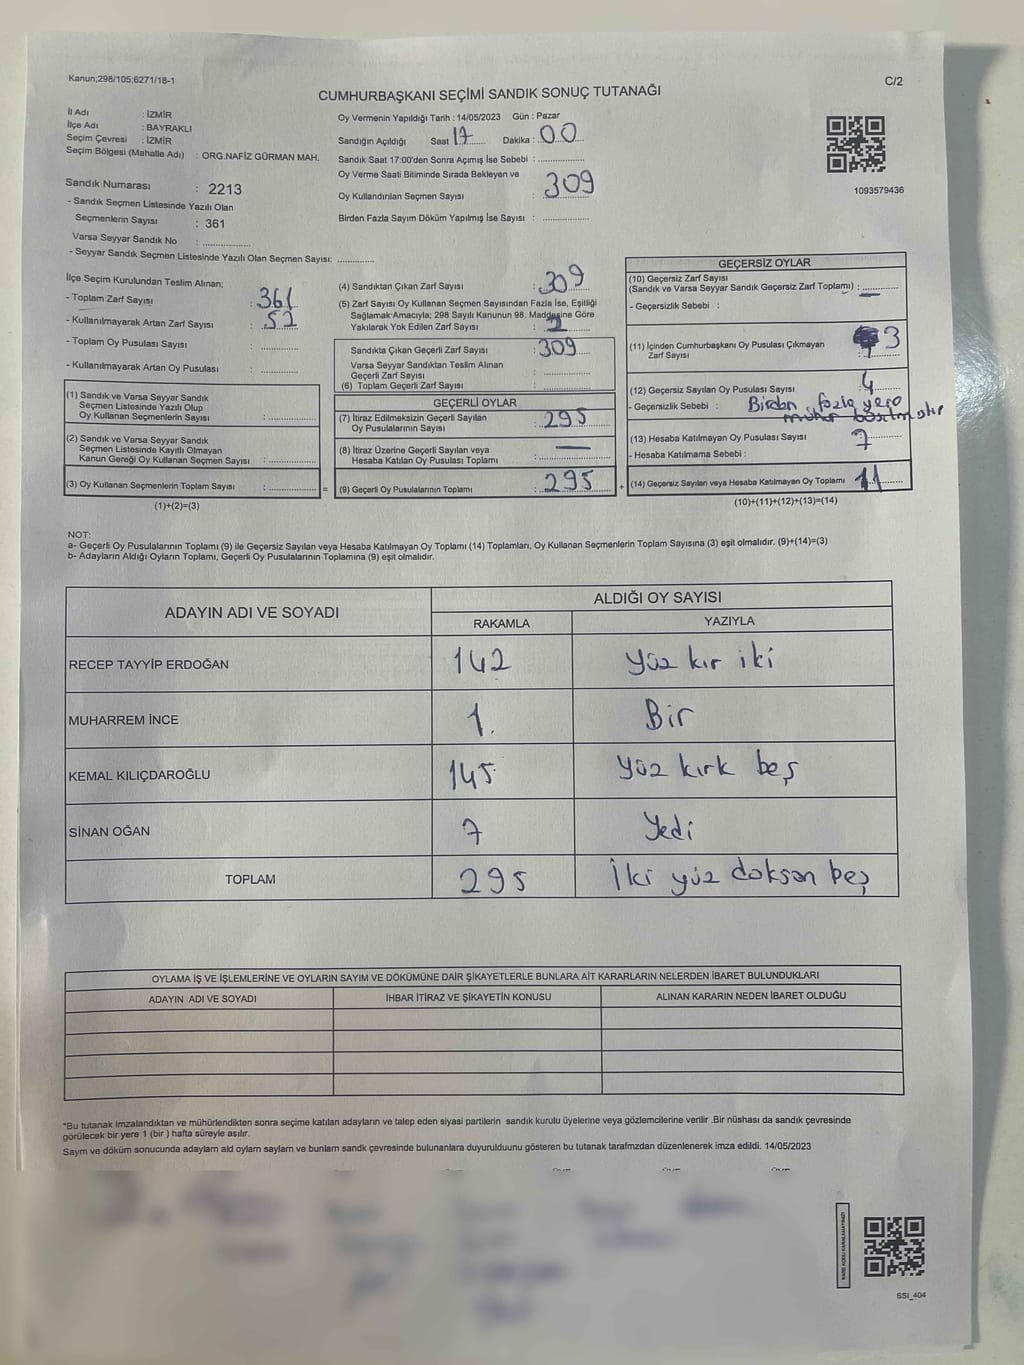 Kanun;298/105;6271/18-1
C/2
CUMHURBAŞKANI SEÇİMİ SANDIK SONUÇ TUTANAĞI
İl Adı : İZMİR
İlçe Adı : BAYRAKLI
Seçim Çevresi : İZMİR
Seçim Bölgesi (Mahalle Adı) : ORG.NAFİZ GÜRMAN MAH.
Sandık Numarası : 2213
- Sandık Seçmen Listesinde Yazılı Olan
Seçmenlerin Sayısı : 361
Varsa Seyyar Sandık No : ................
- Seyyar Sandık Seçmen Listesinde Yazılı Olan Seçmen Sayısı: .............
Oy Vermenin Yapıldığı Tarih : 14/05/2023 Gün : Pazar
Sandığın Açıldığı Saat 17 Dakika : 00
Sandık Saat 17:00'den Sonra Açımış İse Sebebi : ................
Oy Verme Saati Bitiminde Sırada Bekleyen ve
Oy Kullandırılan Seçmen Sayısı : 309
Birden Fazla Sayım Döküm Yapılmış İse Sayısı : ................
1093579436
İlçe Seçim Kurulundan Teslim Alınan;
- Toplam Zarf Sayısı : 361
- Kullanılmayarak Artan Zarf Sayısı : 52
- Toplam Oy Pusulası Sayısı : ................
- Kullanılmayarak Artan Oy Pusulası : ................
(1) Sandık ve Varsa Seyyar Sandık
Seçmen Listesinde Yazılı Olup
Oy Kullanan Seçmenlerin Sayısı : ................
(2) Sandık ve Varsa Seyyar Sandık
Seçmen Listesinde Kayıtlı Olmayan
Kanun Gereği Oy Kullanan Seçmen Sayısı : ................
(3) Oy Kullanan Seçmenlerin Toplam Sayısı : ................
(1)+(2)=(3)
(4) Sandıktan Çıkan Zarf Sayısı : 309
(5) Zarf Sayısı Oy Kullanan Seçmen Sayısından Fazla İse, Eşitliği
Sağlamak Amacıyla; 298 Sayılı Kanunun 98. Maddesine Göre
Yakılarak Yok Edilen Zarf Sayısı : 2
Sandıkta Çıkan Geçerli Zarf Sayısı : 309
Varsa Seyyar Sandıktan Teslim Alınan
Geçerli Zarf Sayısı : ................
(6) Toplam Geçerli Zarf Sayısı : ................
GEÇERLİ OYLAR
(7) İtiraz Edilmeksizin Geçerli Sayılan
Oy Pusulalarının Sayısı : 295
(8) İtiraz Üzerine Geçerli Sayılan veya
Hesaba Katılan Oy Pusulası Toplamı : —
= (9) Geçerli Oy Pusulalarının Toplamı : 295 +
GEÇERSİZ OYLAR
(10) Geçersiz Zarf Sayısı
(Sandık ve Varsa Seyyar Sandık Geçersiz Zarf Toplamı) : —
- Geçersizlik Sebebi :
(11) İçinden Cumhurbaşkanı Oy Pusulası Çıkmayan
Zarf Sayısı : 3
(12) Geçersiz Sayılan Oy Pusulası Sayısı : 4
- Geçersizlik Sebebi : Birden fazla yere
mühür basılmıştır
(13) Hesaba Katılmayan Oy Pusulası Sayısı : 7
- Hesaba Katılmama Sebebi :
(14) Geçersiz Sayılan veya Hesaba Katılmayan Oy Toplamı : 11
(10)+(11)+(12)+(13)=(14)
NOT:
a- Geçerli Oy Pusulalarının Toplamı (9) ile Geçersiz Sayılan veya Hesaba Katılmayan Oy Toplamı (14) Toplamları, Oy Kullanan Seçmenlerin Toplam Sayısına (3) eşit olmalıdır. (9)+(14)=(3)
b- Adayların Aldığı Oyların Toplamı, Geçerli Oy Pusulalarının Toplamına (9) eşit olmalıdır.
ADAYIN ADI VE SOYADI
ALDIĞI OY SAYISI
RAKAMLA YAZIYLA
RECEP TAYYİP ERDOĞAN 142 yüz kır iki
MUHARREM İNCE 1. Bir
KEMAL KILIÇDAROĞLU 145 yüz kırk beş
SİNAN OĞAN 7 Yedi
TOPLAM 295 İki yüz doksan beş
OYLAMA İŞ VE İŞLEMLERİNE VE OYLARIN SAYIM VE DÖKÜMÜNE DAİR ŞİKAYETLERLE BUNLARA AİT KARARLARIN NELERDEN İBARET BULUNDUKLARI
ADAYIN ADI VE SOYADI İHBAR İTİRAZ VE ŞİKAYETİN KONUSU ALINAN KARARIN NEDEN İBARET OLDUĞU
*Bu tutanak imzalandıktan ve mühürlendikten sonra seçime katılan adayların ve talep eden siyasi partilerin sandık kurulu üyelerine veya gözlemcilerine verilir .Bir nüshası da sandık çevresinde
görülecek bir yere 1 (bir ) hafta süreyle asılır.
Saym ve döküm sonucunda adaylarn ald oylarn saylarn ve bunlarn sandk çevresinde bulunanlara duyurulduunu gösteren bu tutanak tarafmzdan düzenlenerek imza edildi. 14/05/2023
KARE KODU KARALAMAYINIZ!
SSI_404